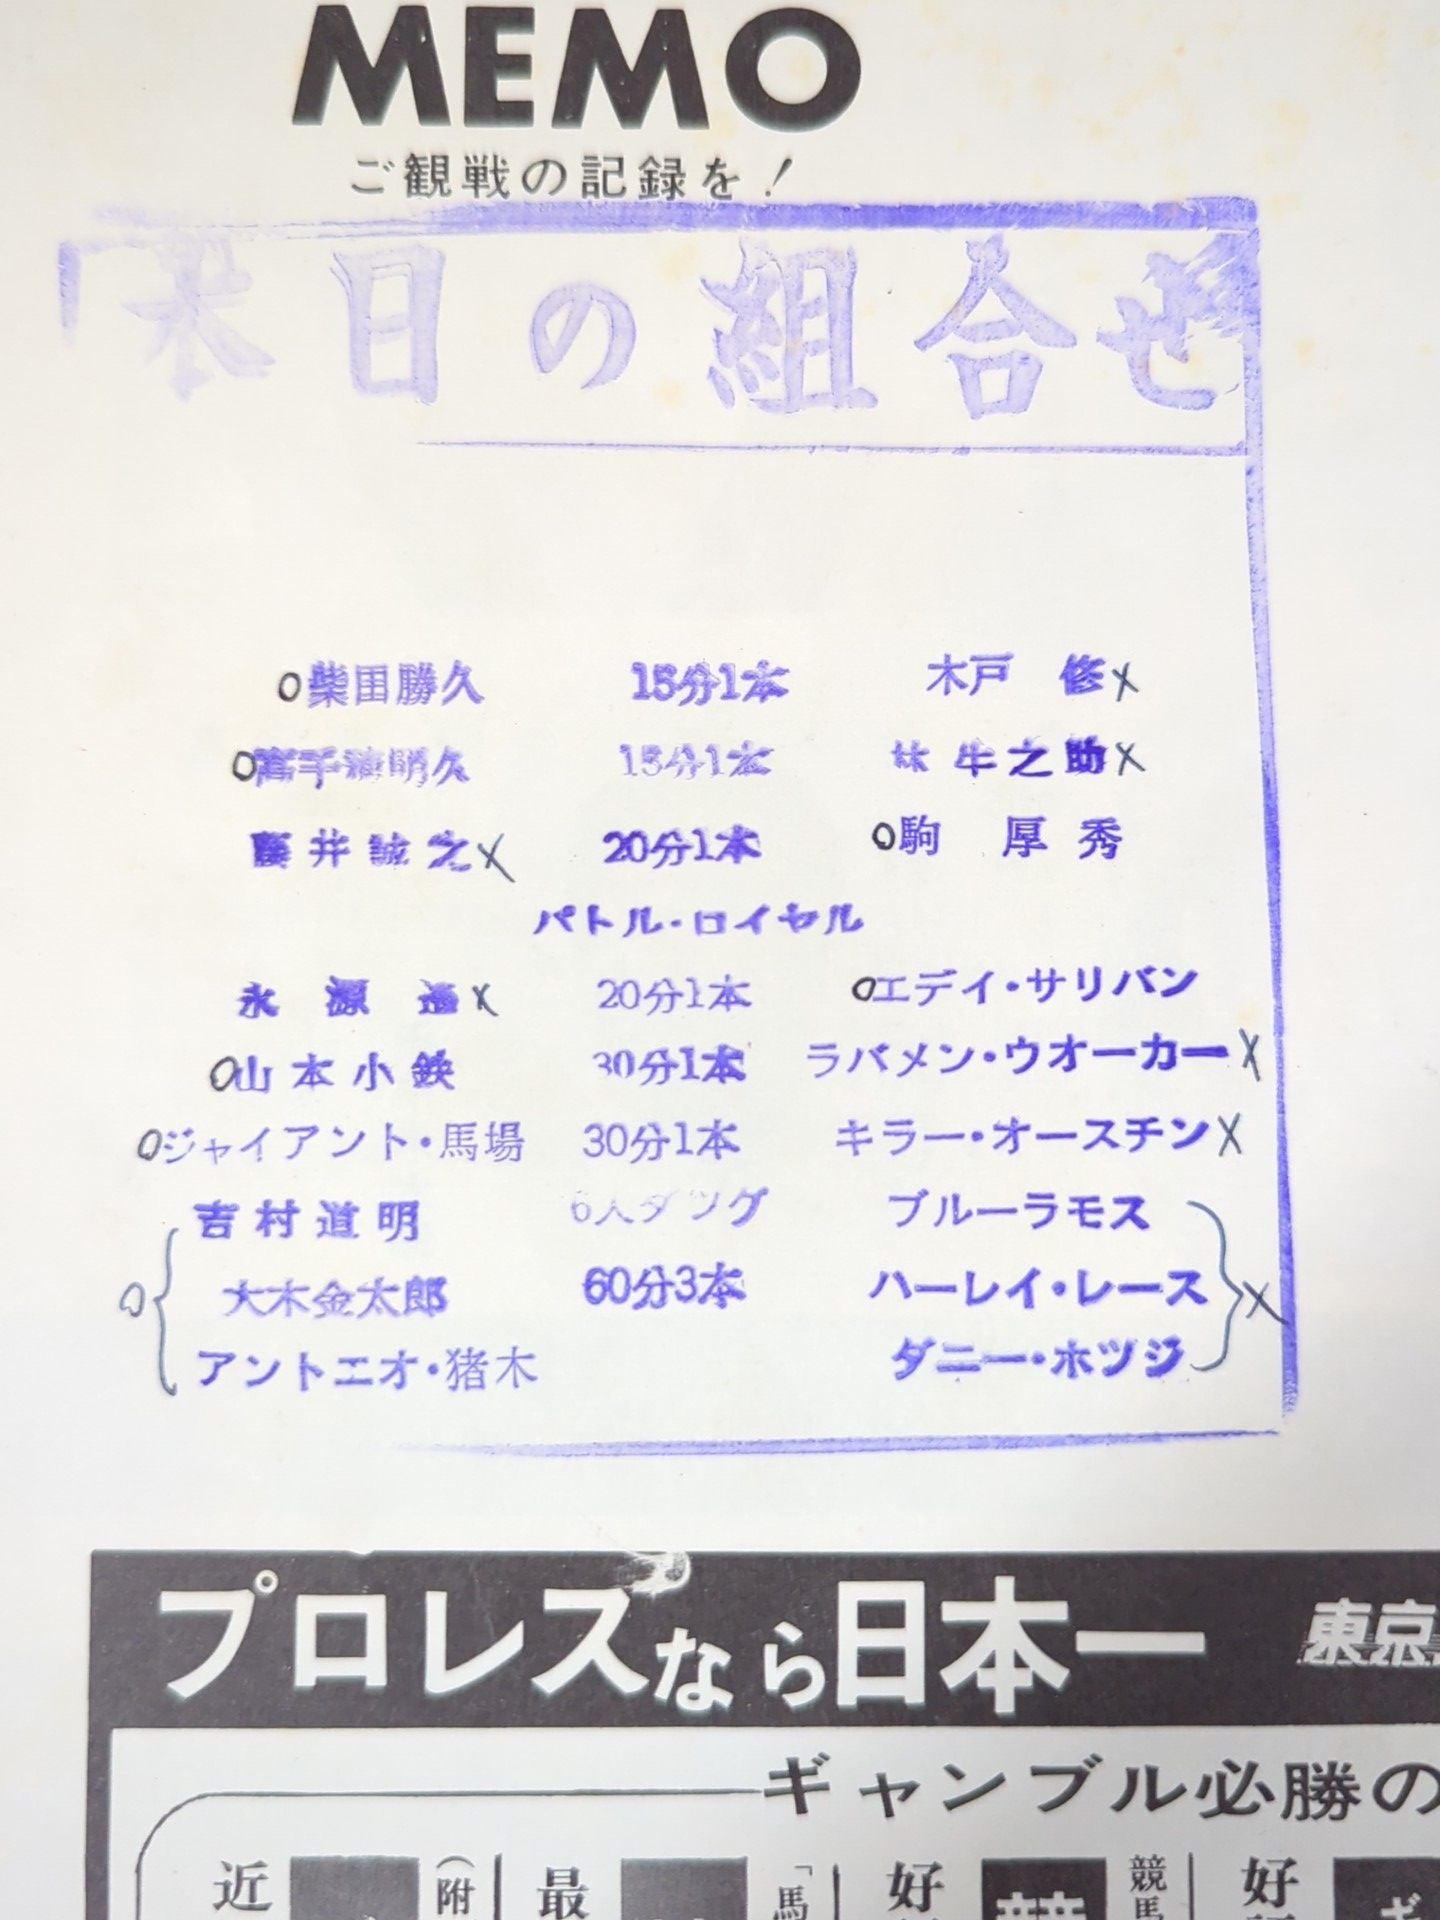 MEMO
ご観戦の記録を！
本日の組合せ
○柴田勝久 15分1本 木戸 修×
○高千穂明久 15分1本 林牛之助×
藤井誠之× 20分1本 ○駒 厚秀
バトル・ロイヤル
永源遥× 20分1本 ○エデイ・サリバン
○山本小鉄 30分1本 ラバメン・ウオーカー×
○ジャイアント・馬場 30分1本 キラー・オースチン×
吉村道明 6人タツグ ブルーラモス
○ 大木金太郎 60分3本 ハーレイ・レース ×
アントニオ・猪木 ダニー・ホツジ
プロレスなら日本一 東京
ギャンブル必勝の
近 (附 最 「馬 好 競馬 好